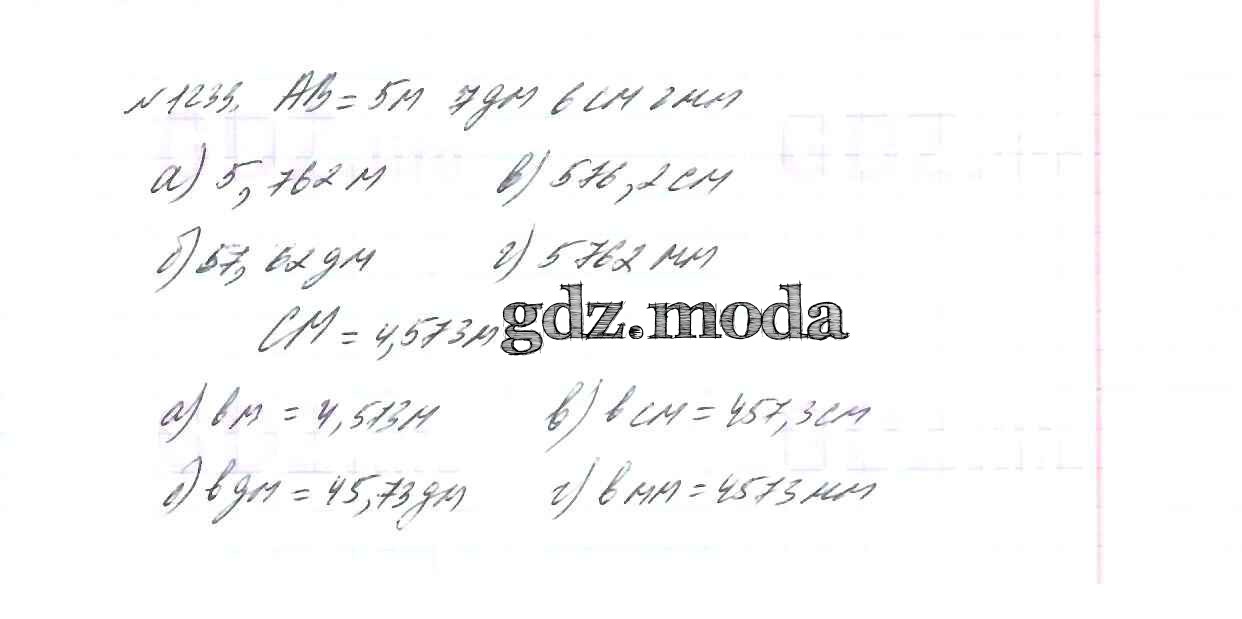 №1239. АВ = 5м 7дм 6см 2мм
а) 5,762 м в) 576,2 см
б) 57,62 дм г) 5762 мм
СМ = 4,573м
gdz.moda
а) в м = 4,573м в) в см = 457,3см
б) в дм = 45,73дм г) в мм = 4573мм